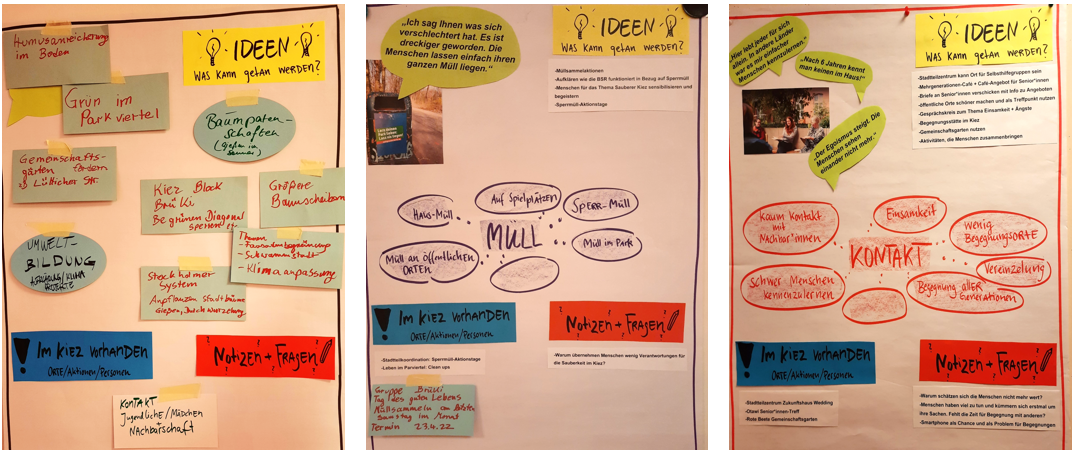 Humusanreicherung
im Boden
IDEEN
WAS KANN getan WERDEN?
Grün im
Parkviertel
Baumpaten-
schaften
(gießen im
Sommer)
Gemeinschafts-
gärten fördern
Lütticher Str.
Kiez Block
BrüKi
Begrünen, Diagonal
sperren
Größere
Baumscheiben
UMWELT-
BILDUNG
Themen
- Fassadenbegrünung
- Schwammstadt
- Klimaanpassung
Stockholmer
System
Anpflanzen Stadtbäume
Gießen, Durchwurzelung
! Im KIEZ vorhanDEN
ORTE/Aktionen/Personen
NOTIZEN + FRAGEN!
KONTAKT
Jugendliche/Mädchen
NAchbarschaft
„Ich sag Ihnen was sich
verschlechtert hat. Es ist
dreckiger geworden. Die
Menschen lassen einfach ihren
ganzen Müll liegen.“
IDEEN
WAS KANN getan WERDEN?
-Müllsammelaktionen
-Aufklären wie die BSR funktioniert in Bezug auf Sperrmüll
-Menschen für das Thema Sauberer Kiez sensibilisieren und
begeistern
-Sperrmüll-Aktionstage
HAUS-MÜLL
Auf Spielplätzen
SPERR-MÜLL
MÜLL
Müll im Park
Müll an öffentlichen
ORTEN
! Im KIEZ vorhanDEN
ORTE/Aktionen/Personen
NOTIZEN + FRAGEN
-Stadtteilkoordination: Sperrmüll-Aktionstage
-Leben im Parviertel: Clean ups
-Warum übernehmen Menschen wenig Verantwortungen für
die Sauberkeit im Kiez?
Gruppe BrüKi
Tag des guten Lebens
Müllsammeln am letzten
Samstag im Monat
Termin 23.4.22
„Hier lebt jeder für sich
allein. In andere Länder
war es mir einfacher
Menschen kennzulernen.“
„Nach 6 Jahren kennt
man keinen im Haus!“
„Der Egoismus steigt. Die
Menschen sehen
einander nicht mehr.“
IDEEN
WAS KANN getan WERDEN?
-Stadtteilzentrum kann Ort für Selbsthilfegruppen sein
-Mehrgenerationen-Cafe + Café-Angebot für Senior*innen
-Briefe an Senior*innen verschicken mit Info zu Angeboten
-öffentliche Orte schöner machen und als Treffpunkt nutzen
-Gesprächskreis zum Thema Einsamkeit + Ängste
-Begegnungsstätte im Kiez
-Gemeinschaftsgarten nutzen
-Aktivitäten, die Menschen zusammenbringen
kaum Kontakt
mit
Nachbor*innen
Einsamkeit
wenig
BegegnungsORTE
KONTAKT
Vereinzelung
Schwer Menschen
kennenzulernen
Begegnung allER
Generationen
! Im KIEZ vorhanDEN
ORTE/Aktionen/Personen
NOTIZEN + FRAGEN
-Stadtteilzentrum Zukunftshaus Wedding
-Otawi Senior*innen-Treff
-Rote Beete Gemeinschaftsgarten
-Warum schätzen sich die Menschen nicht mehr wert?
-Menschen haben viel zu tun und kümmern sich erstmal um
ihre Sachen. Fehlt die Zeit für Begegnung mit anderen?
-Smartphone als Chance und als Problem für Begegnungen